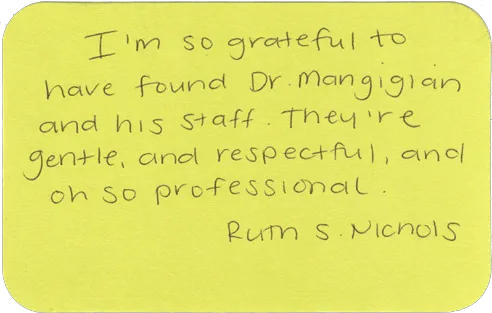 I'm so grateful to
have found Dr. Mangigian
and his staff. They're
gentle, and respectful, and
oh so professional.
Ruth S. Nichols